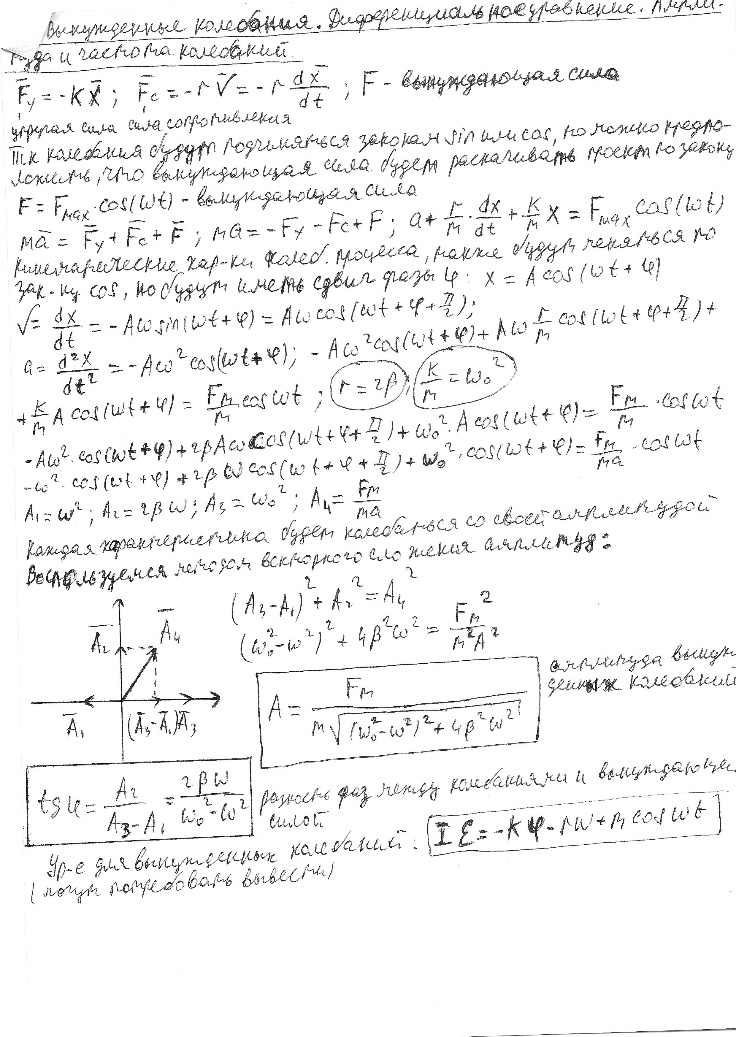 Вынужденные колебания. Дифференциальное уравнение. Ампли-
туда и частота колебаний
F̅у = -K X̅ ; F̅c = -r V̅ = -r dx̅/dt ; F - вынуждающая сила
упругая сила сила сопротивления
Т.к колебания будут подчиняться законам sin или cos, то можно предпо-
ложить, что вынуждающая сила будет раскачивать по закону
F = Fmax · cos(wt) - вынуждающая сила
ma̅ = F̅у + F̅c + F̅ ; ma = -Fу - Fc + F ; a + r/m · dx/dt + K/m X = Fmax cos(wt)
Кинематические хар-ки колеб. процесса, также будут меняться по
зак-ну cos, но будут иметь сдвиг фазы φ : x = A cos(wt + φ)
V = dx/dt = -Aw sin(wt + φ) = Aw cos(wt + φ + π/2);
a = d²x/dt² = -Aω² cos(wt + φ); -Aω² cos(wt + φ) + Aw r/m cos(wt + φ + π/2) +
+ K/m A cos(wt + φ) = Fм/m cos wt ; r = 2β K/m = ω₀²
-Aω² · cos(wt + φ) + 2βAω cos(wt + φ + π/2) + ω₀² · A cos(wt + φ) = Fм/m · cos wt
-ω² · cos(wt + φ) + 2βω cos(wt + φ + π/2) + ω₀² · cos(wt + φ) = Fм/ma · cos wt
A₁ = ω² ; A₂ = 2βω ; A₃ = ω₀² ; A₄ = Fм/ma
Каждая характеристика будет колебаться со своей амплитудой
Воспользуемся методом векторного сложения амплитуд:
(A₃ - A₁)² + A₂² = A₄²
A̅₂ A̅₄
(ω₀² - ω²)² + 4β²ω² = Fм²/m²A²
A̅₁ (A̅₃-A̅₁) A̅₃
A = Fм / m√((ω₀² - ω²)² + 4β²ω²)
амплитуда вынуж
денных колебаний
tg φ = A₂/(A₃ - A₁) = 2βω/(ω₀² - ω²)
разность фаз между колебаниями и вынуждающей
силой
Ур-е для вынужденных колебаний : I ε = -K φ - r w + M cos wt
(могут потребовать вывести)